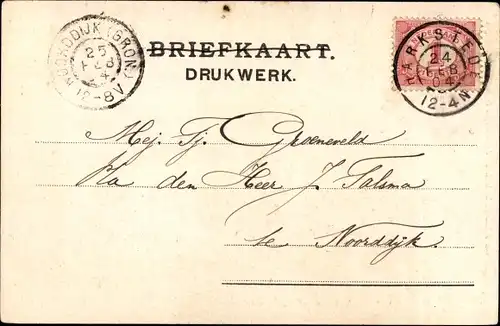 NOORDDIJK (GRON.)
25
FEB
4
12-8V
BRIEFKAART.
DRUKWERK.
HARKSTEDE
24
FEB
04
12-4N
Mej. Tj. Groeneveld
p/a den Heer J. Talsma
te Noorddijk.